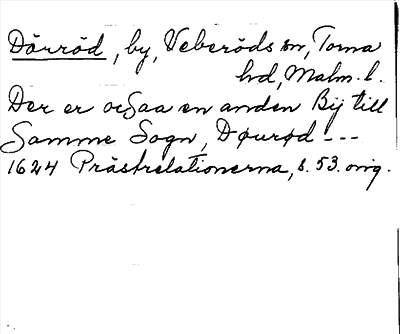 Dörröd, by, Veberöds sn, Torna
hd, Malm. l.
Der er ocsaa en anden Bij till
Samme Sogn, Døurød ---
1624 Prästrelationerna, s. 53. orig.